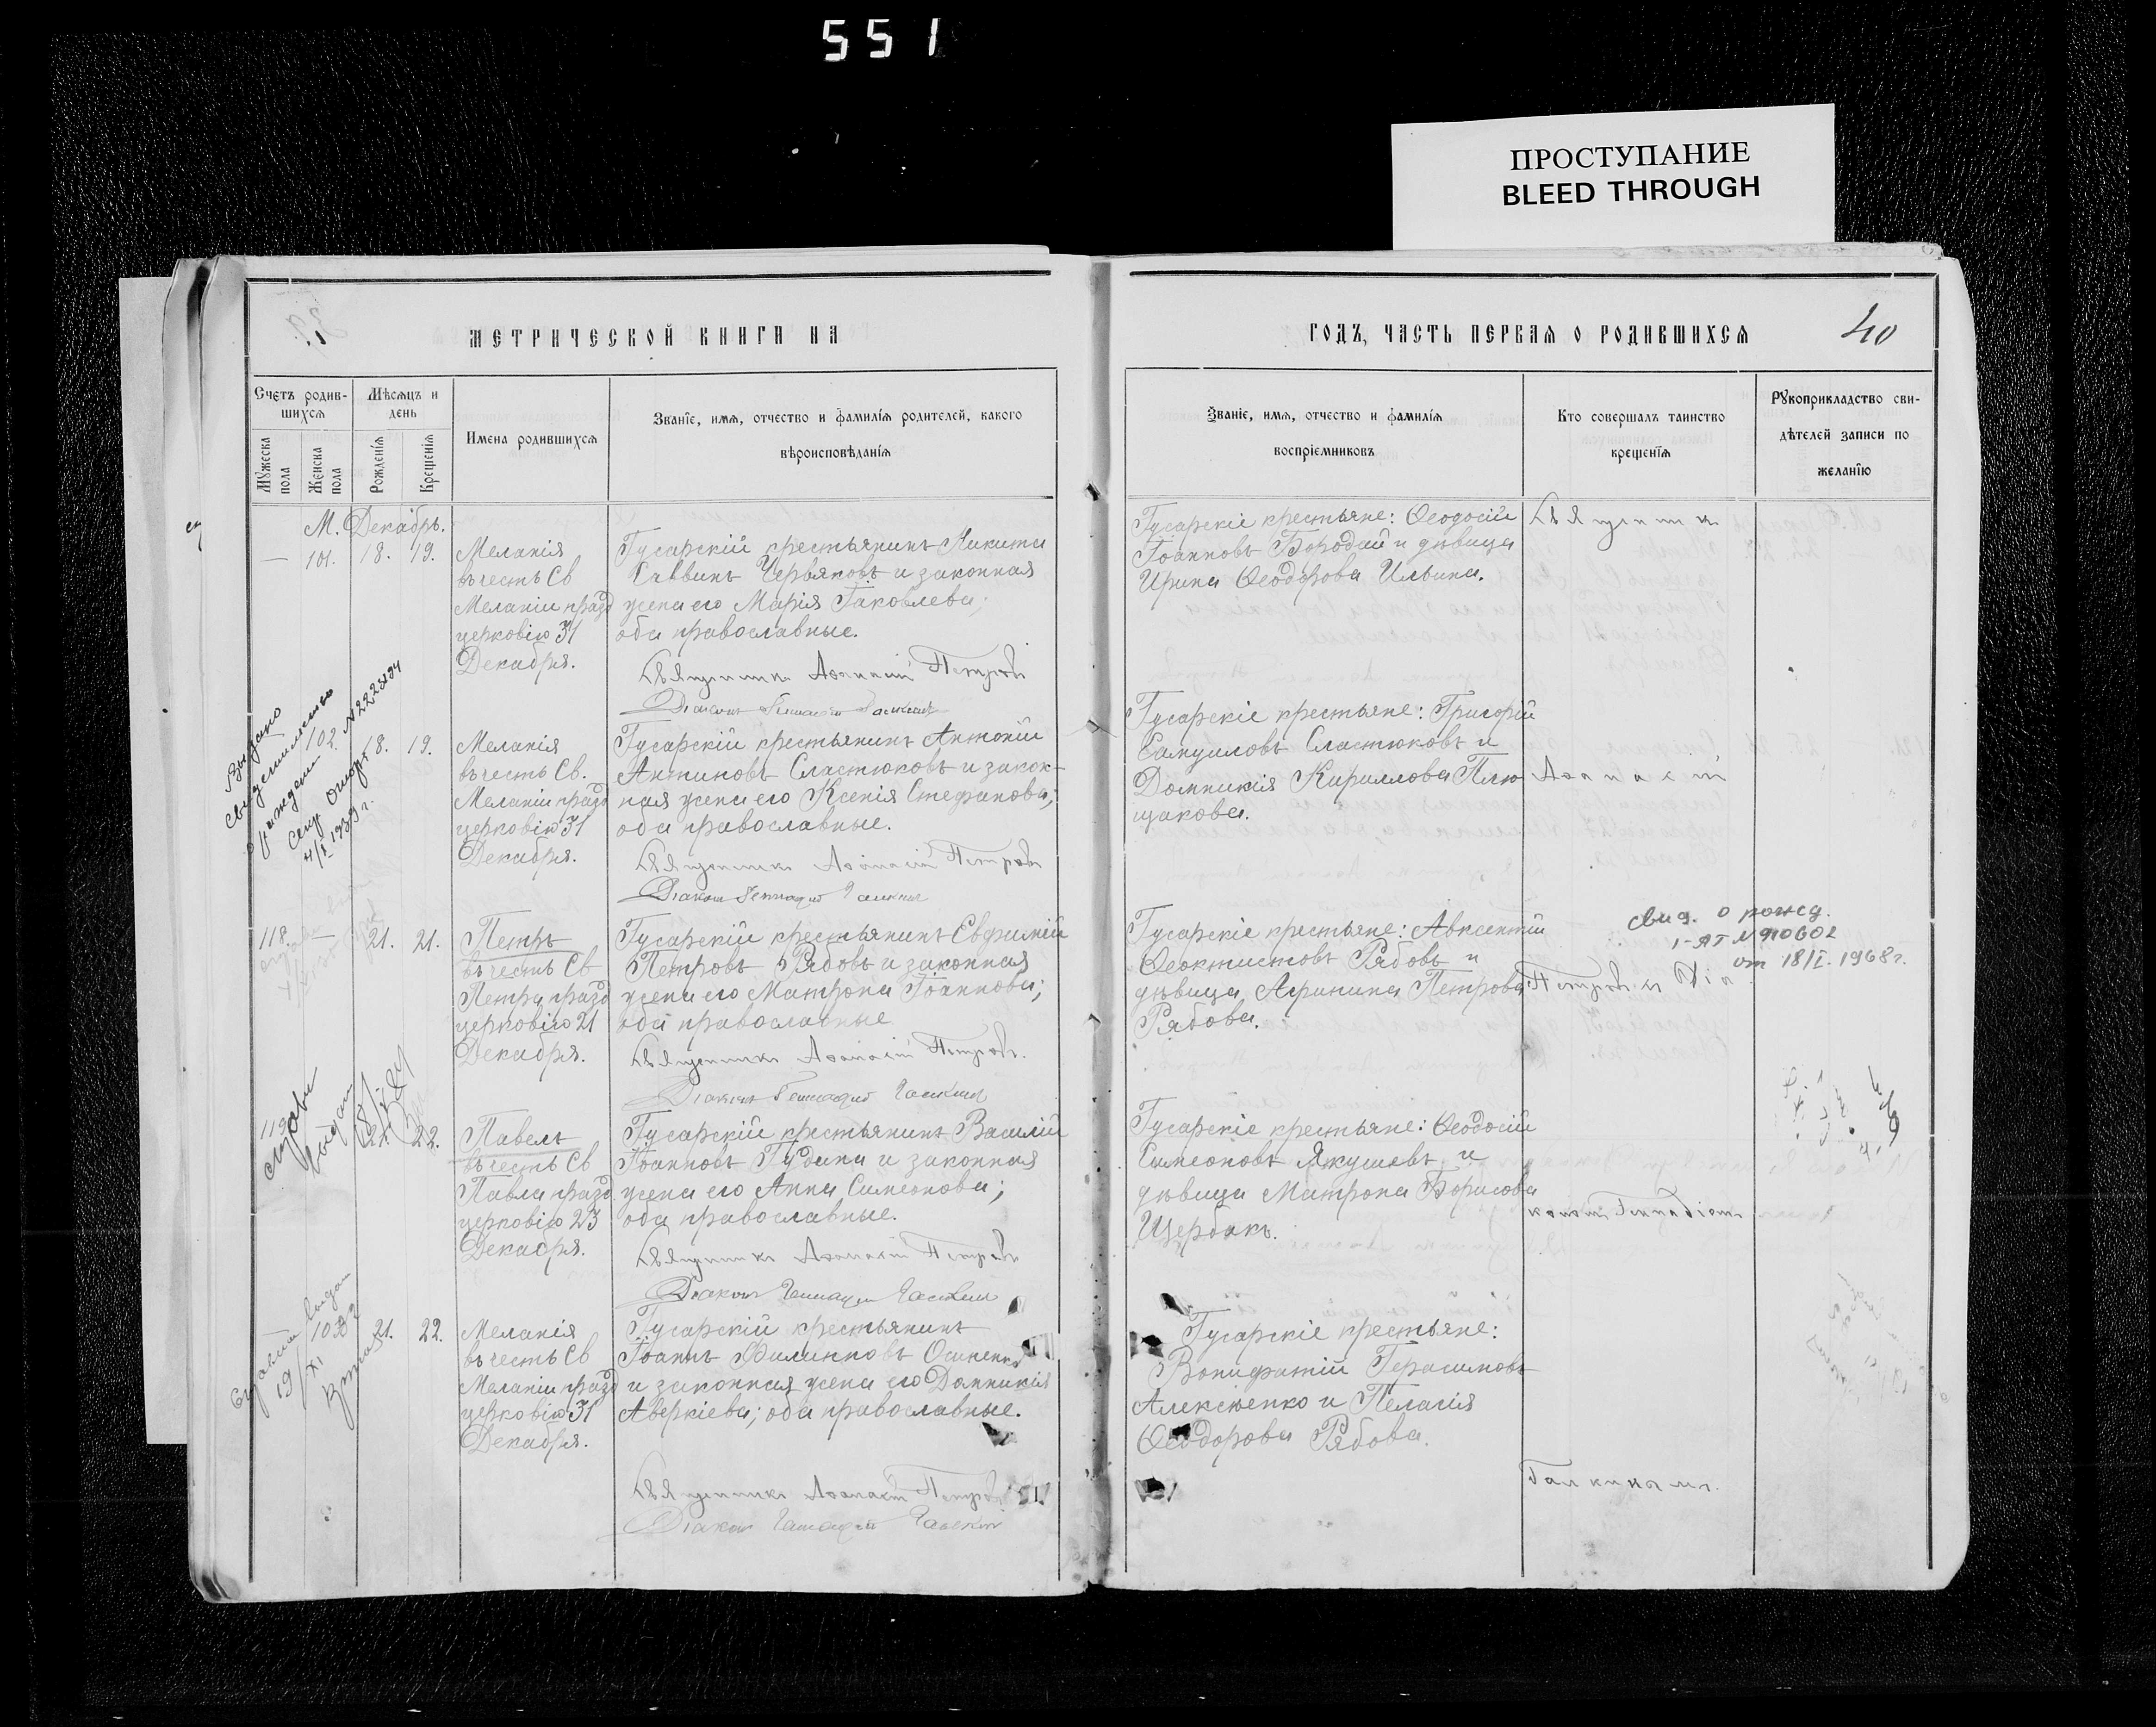 551
ПРОСТУПАНИЕ
BLEED THROUGH
МЕТРИЧЕСКОЙ КНИГИ НА
ГОДЪ, ЧАСТЬ ПЕРВАЯ О РОДИВШИХСЯ
40
Счетъ родив-
шихся
Мѣсяцъ и
день
Мужеска
пола
Женска
пола
Рожденія
Крещенія
Имена родившихся
Званіе, имя, отчество и фамилія родителей, какого
вѣроисповѣданія
Званіе, имя, отчество и фамилія
воспріемниковъ
Кто совершалъ таинство
крещенія
Рукоприкладство сви-
дѣтелей записи по
желанію
М. Декабрь.
— 101. 18. 19.
Меланія
въ честь Св
Меланіи празд
церковію 31
Декабря.
Гусарскій крестьянинъ Никита
Саввинъ Червяковъ и законная
жена его Марія Іаковлева;
оба православные.
Священникъ Аѳанасій Петровъ
Діаконъ Геннадій Галкинъ
Гусарскіе крестьяне: Ѳеодосій
Іоанновъ Бородай и дѣвица
Ирина Ѳеодорова Ильина.
Священникъ
Выдано
свидетельство
о рождении
№ 222
1939 г.
102. 18. 19.
Меланія
въ честь Св.
Меланіи празд
церковію 31
Декабря.
Гусарскій крестьянинъ Антоній
Антиповъ Сластюковъ и закон-
ная жена его Ксенія Стефанова;
оба православные.
Священникъ Аѳанасій Петровъ
Діаконъ Геннадій Галкинъ
Гусарскіе крестьяне: Григорій
Самуиловъ Сластюковъ и
Домникія Кириллова Плю
щакова.
Аѳанасій
118. — 21. 21.
Петръ
въ честь Св
Петра празд
церковію 21
Декабря.
Гусарскій крестьянинъ Евфимій
Петровъ Рябовъ и законная
жена его Матрона Іоаннова;
оба православные
Священникъ Аѳанасій Петровъ.
Діаконъ Геннадій Галкинъ
Гусарскіе крестьяне: Авксентій
Ѳеоктистовъ Рябовъ и
дѣвица Агрипина Петрова
Рябова.
Петровъ съ Діа
свид. о рожд.
I-ЯТ № 910602
от 18/I. 1968 г.
119. 21. 22.
справка
выдан
Павелъ
въ честь Св
Павла празд
церковію 23
Декабря.
Гусарскій крестьянинъ Василій
Іоанновъ Гудина и законная
жена его Анна Симеонова;
оба православные.
Священникъ Аѳанасій Петровъ
Діаконъ Геннадій Галкинъ
Гусарскіе крестьяне: Ѳеодосій
Симеоновъ Якушевъ и
дѣвица Матрона Борисова
Щербакъ.
кономъ Геннадіемъ
103 21. 22.
Меланія
въ честь Св
Меланіи празд
церковію 31
Декабря.
Гусарскій крестьянинъ
Іоаннъ Филипповъ Осипенко
и законная жена его Домникія
Аверкіева; оба православные.
Священникъ Аѳанасій Петровъ
Діаконъ Геннадій Галкинъ
Гусарскіе крестьяне:
Вонифатій Герасимовъ
Алексѣенко и Пелагія
Ѳеодорова Рябова.
Галкинымъ.